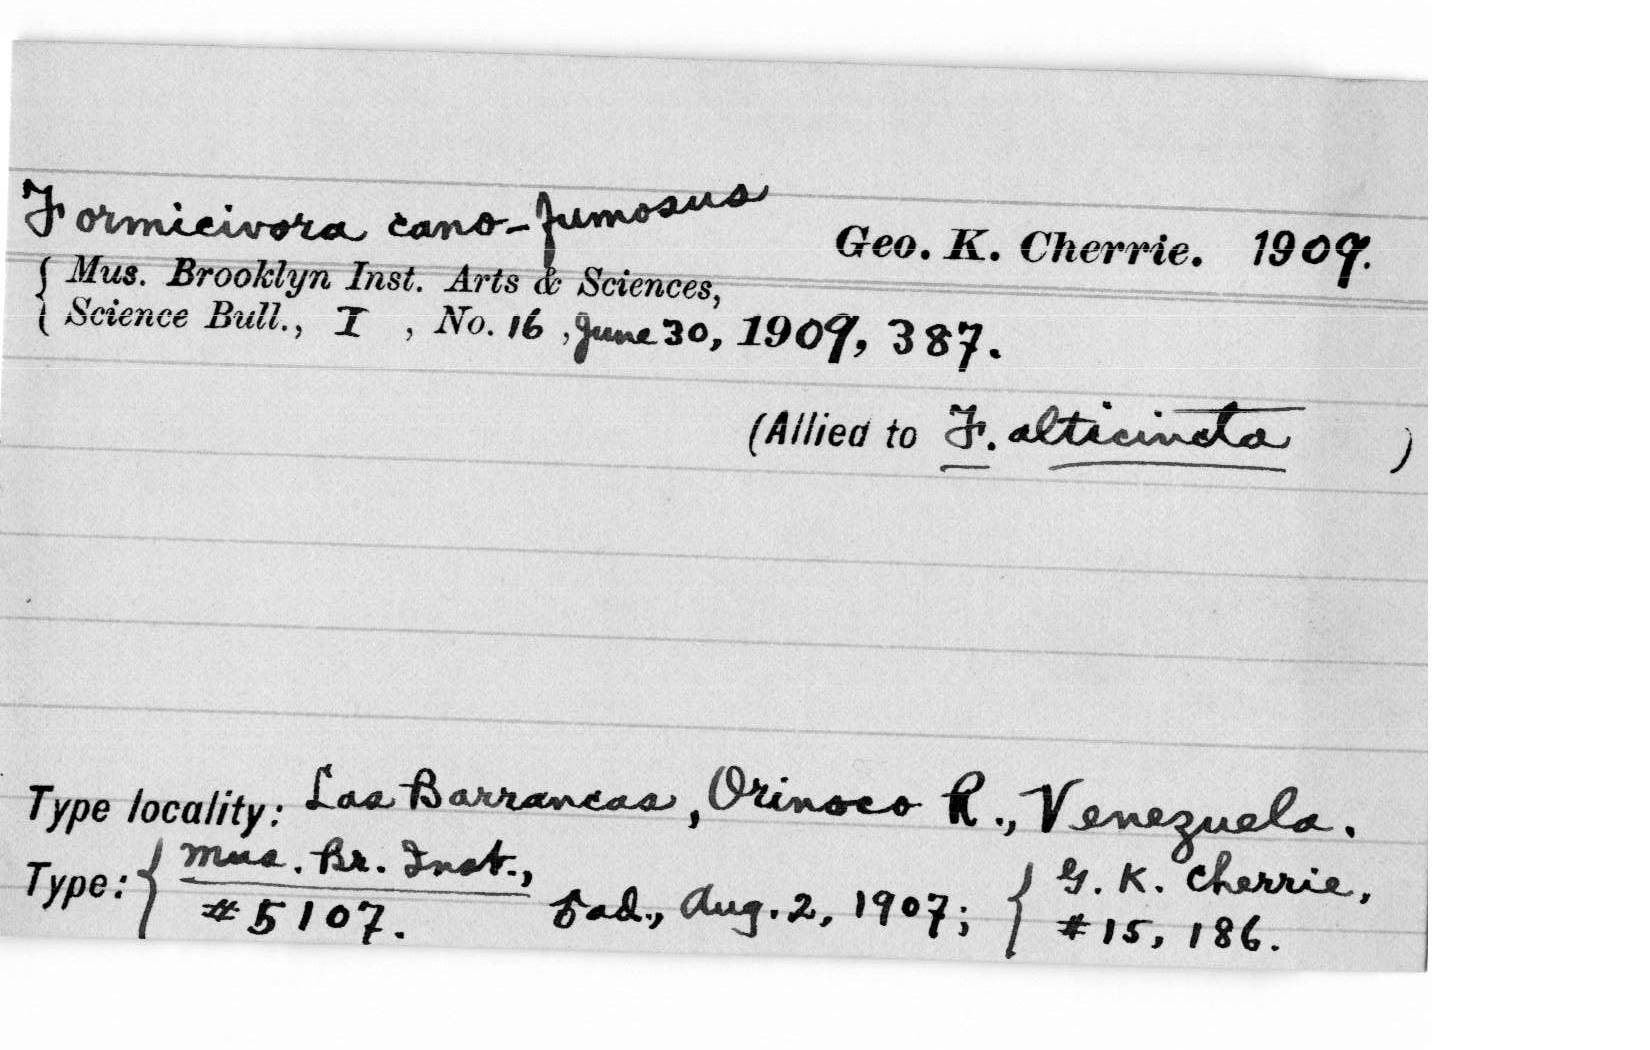 Formicivora cano-fumosus
Geo. K. Cherrie. 1909.
Mus. Brooklyn Inst. Arts & Sciences,
Science Bull., I , No. 16 , June 30, 1909, 387.
(Allied to F. alticincta )
Type locality: Las Barrancas, Orinoco R., Venezuela.
Type: Mus. Br. Inst., #5107. ♂ad., Aug. 2, 1907; G. K. Cherrie, #15, 186.